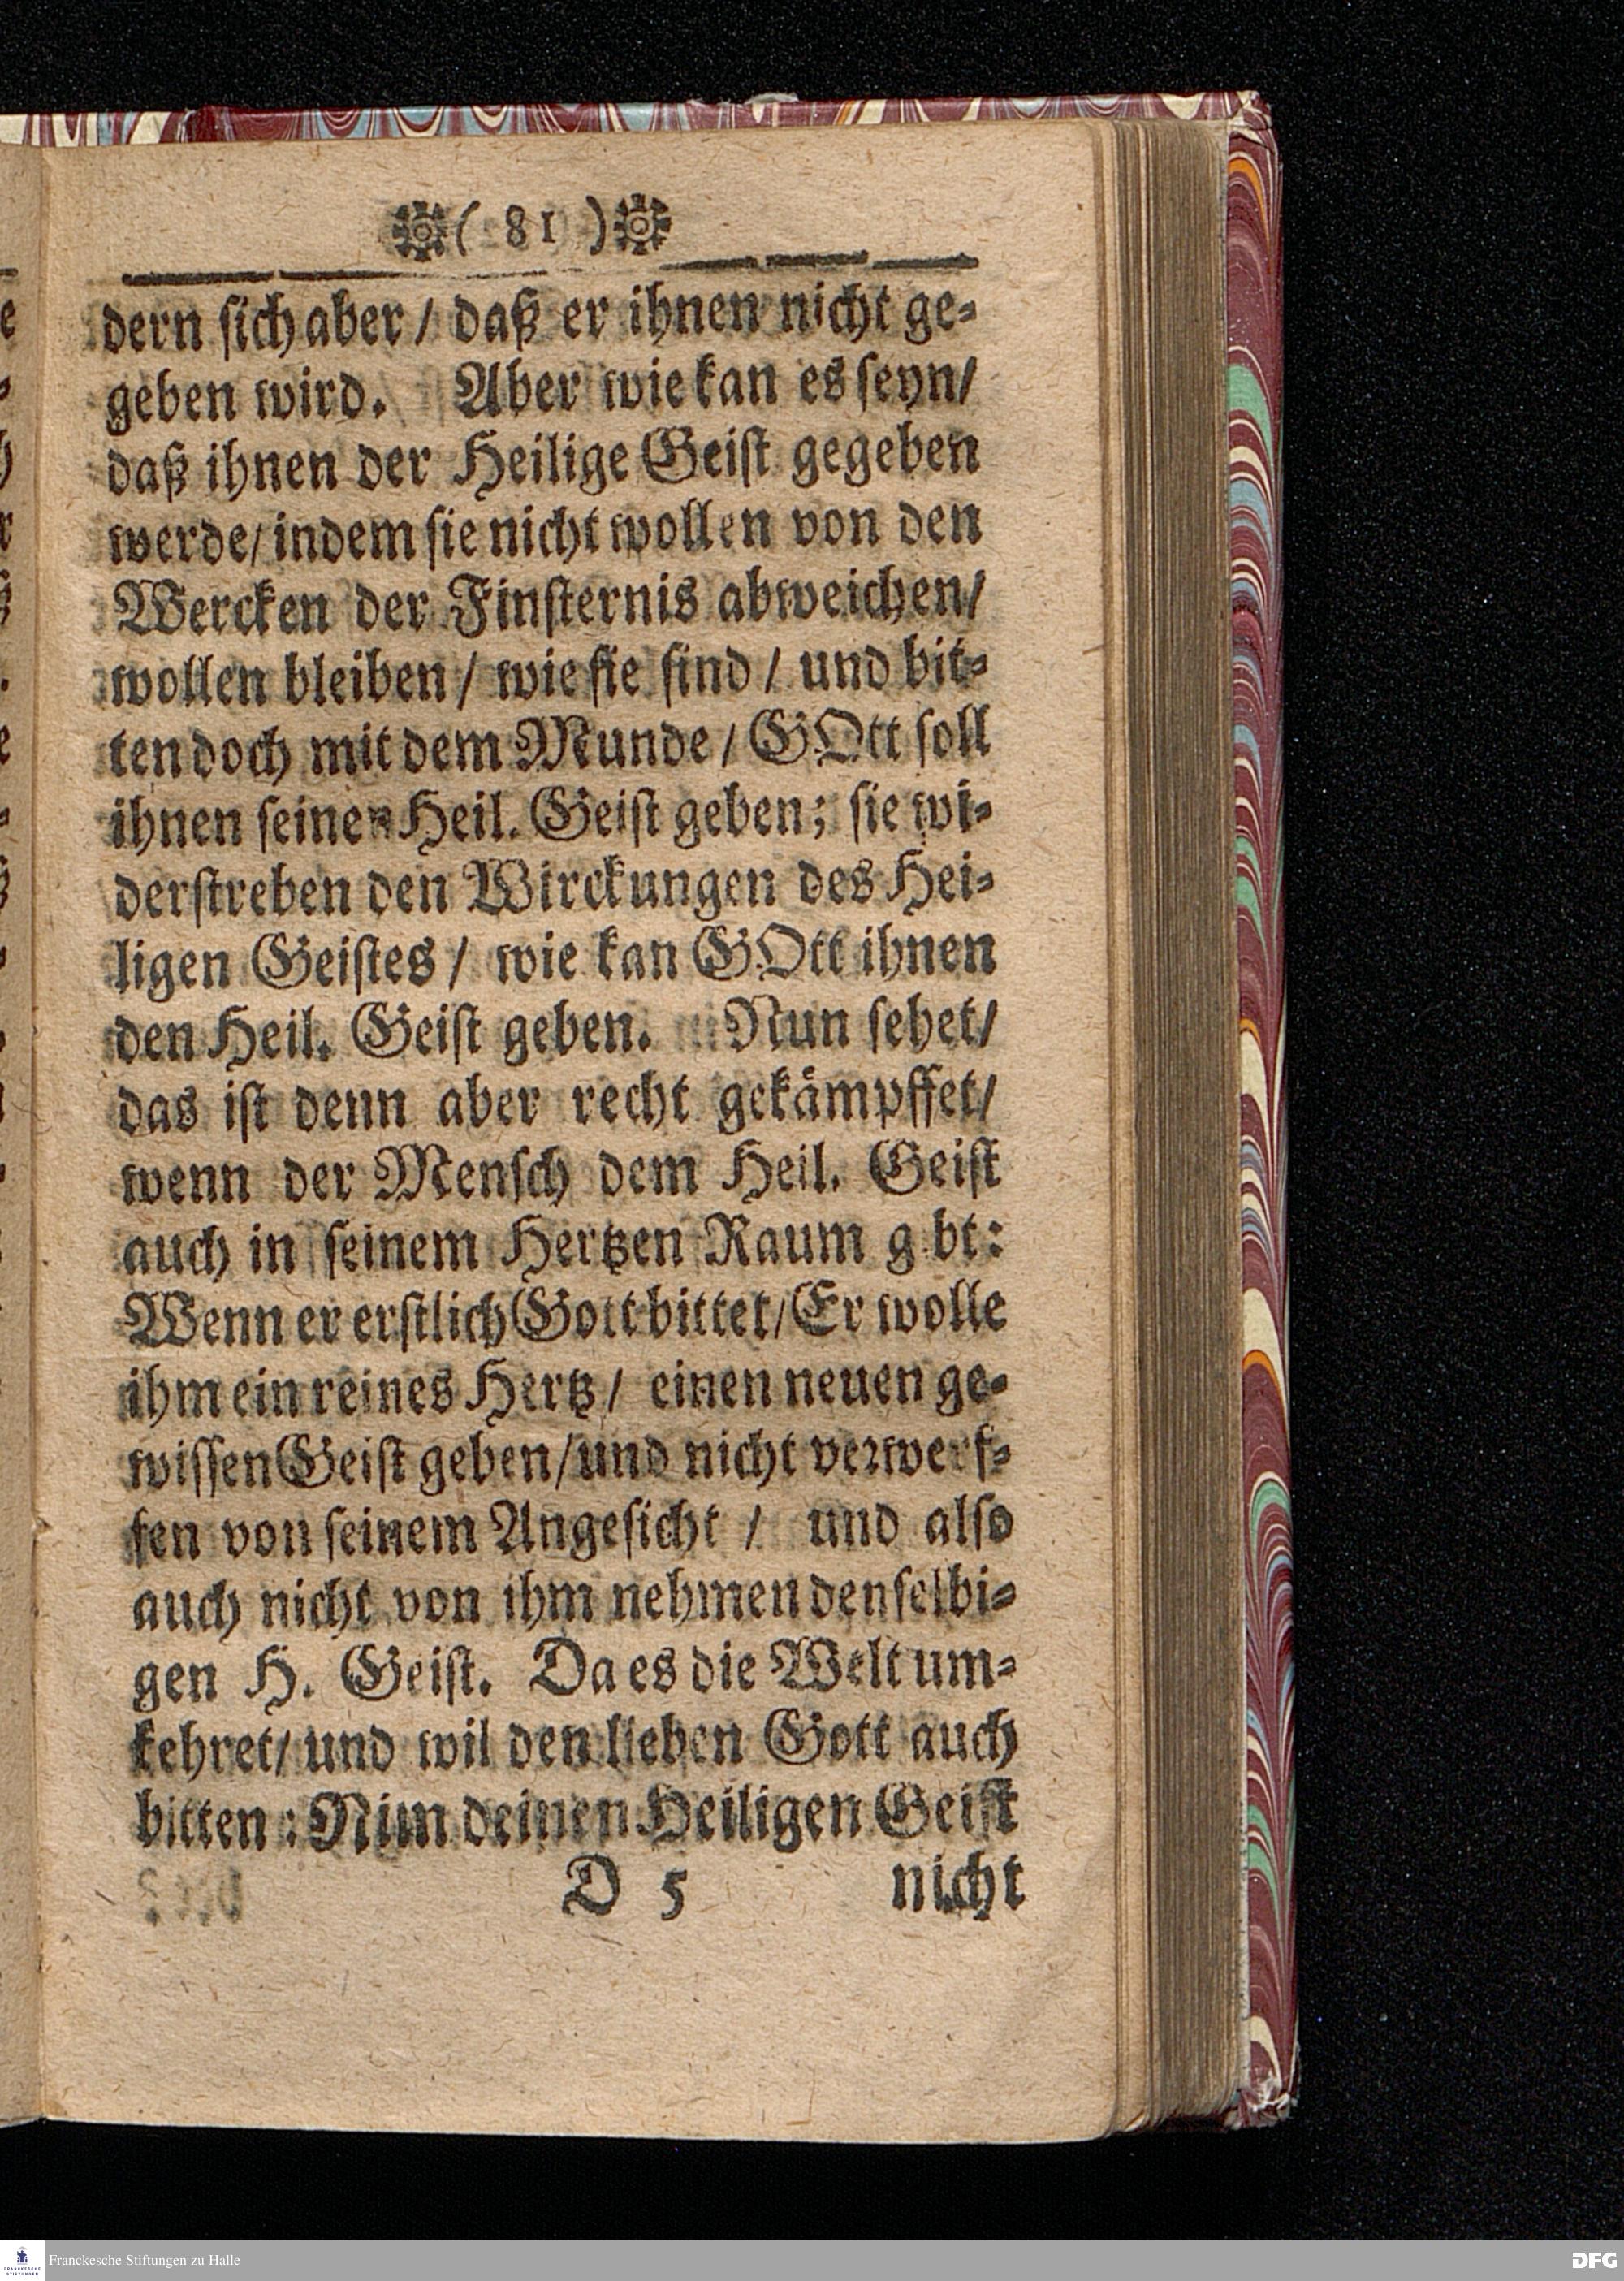 ( 81 )
dern sich aber / daß er ihnen nicht ge-
geben wird. Aber wie kan es seyn/
daß ihnen der Heilige Geist gegeben
werde/ indem sie nicht wollen von den
Wercken der Finsternis abweichen/
wollen bleiben / wie sie sind / und bit-
ten doch mit dem Munde / GOtt soll
ihnen seinen Heil. Geist geben; sie wi-
derstreben den Wirckungen des Hei-
ligen Geistes / wie kan GOtt ihnen
den Heil. Geist geben. Nun sehet/
das ist denn aber recht gekämpffet/
wenn der Mensch dem Heil. Geist
auch in seinem Hertzen Raum g bt:
Wenn er erstlich Gott bittet/ Er wolle
ihm ein reines Hertz / einen neuen ge-
wissen Geist geben/ und nicht verwerf-
fen von seinem Angesicht / und also
auch nicht von ihm nehmen denselbi-
gen H. Geist. Da es die Welt um-
kehret/ und wil den lieben Gott auch
bitten: Nim deinen Heiligen Geist
D 5 nicht
Franckesche Stiftungen zu Halle
DFG